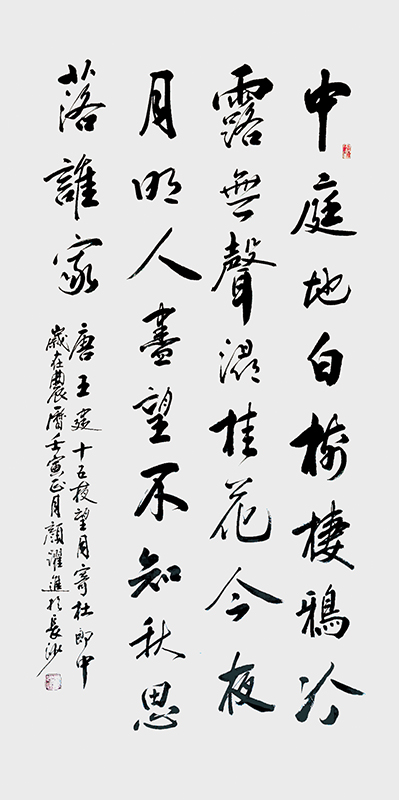 中庭地白樹棲鴉冷
露無聲濕桂花今夜
月明人盡望不知秋思
落誰家
唐王建十五夜望月寄杜郎中
歲在農曆壬寅正月顏躍進於長沙